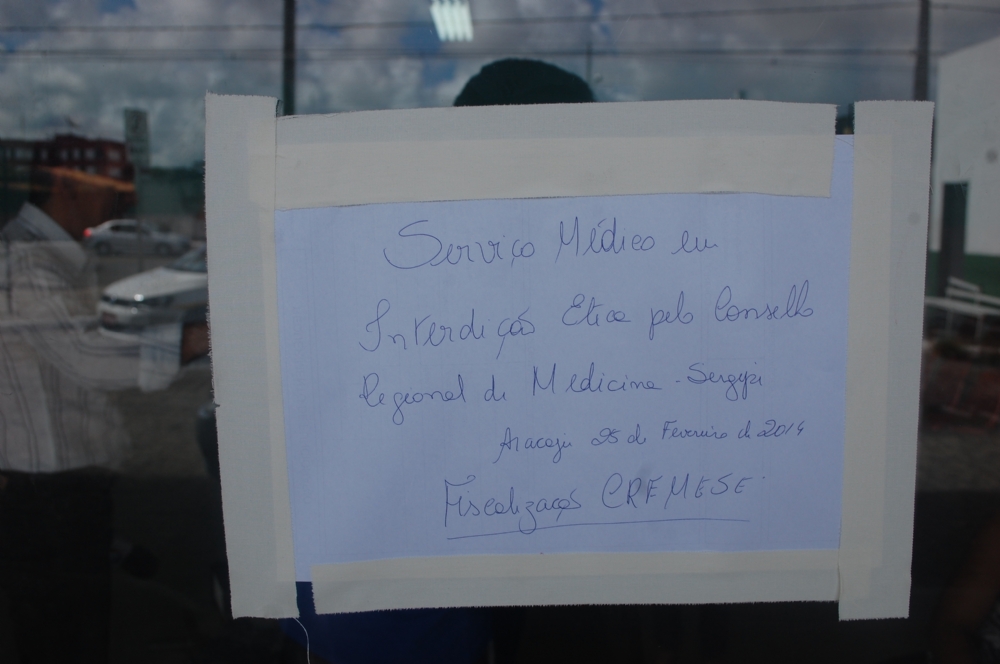 Serviço Médico em
Interdição Etica pelo Conselho
Regional de Medicina - Sergipe
Aracaju 25 de Fevereiro de 2014
Fiscalização CREMESE